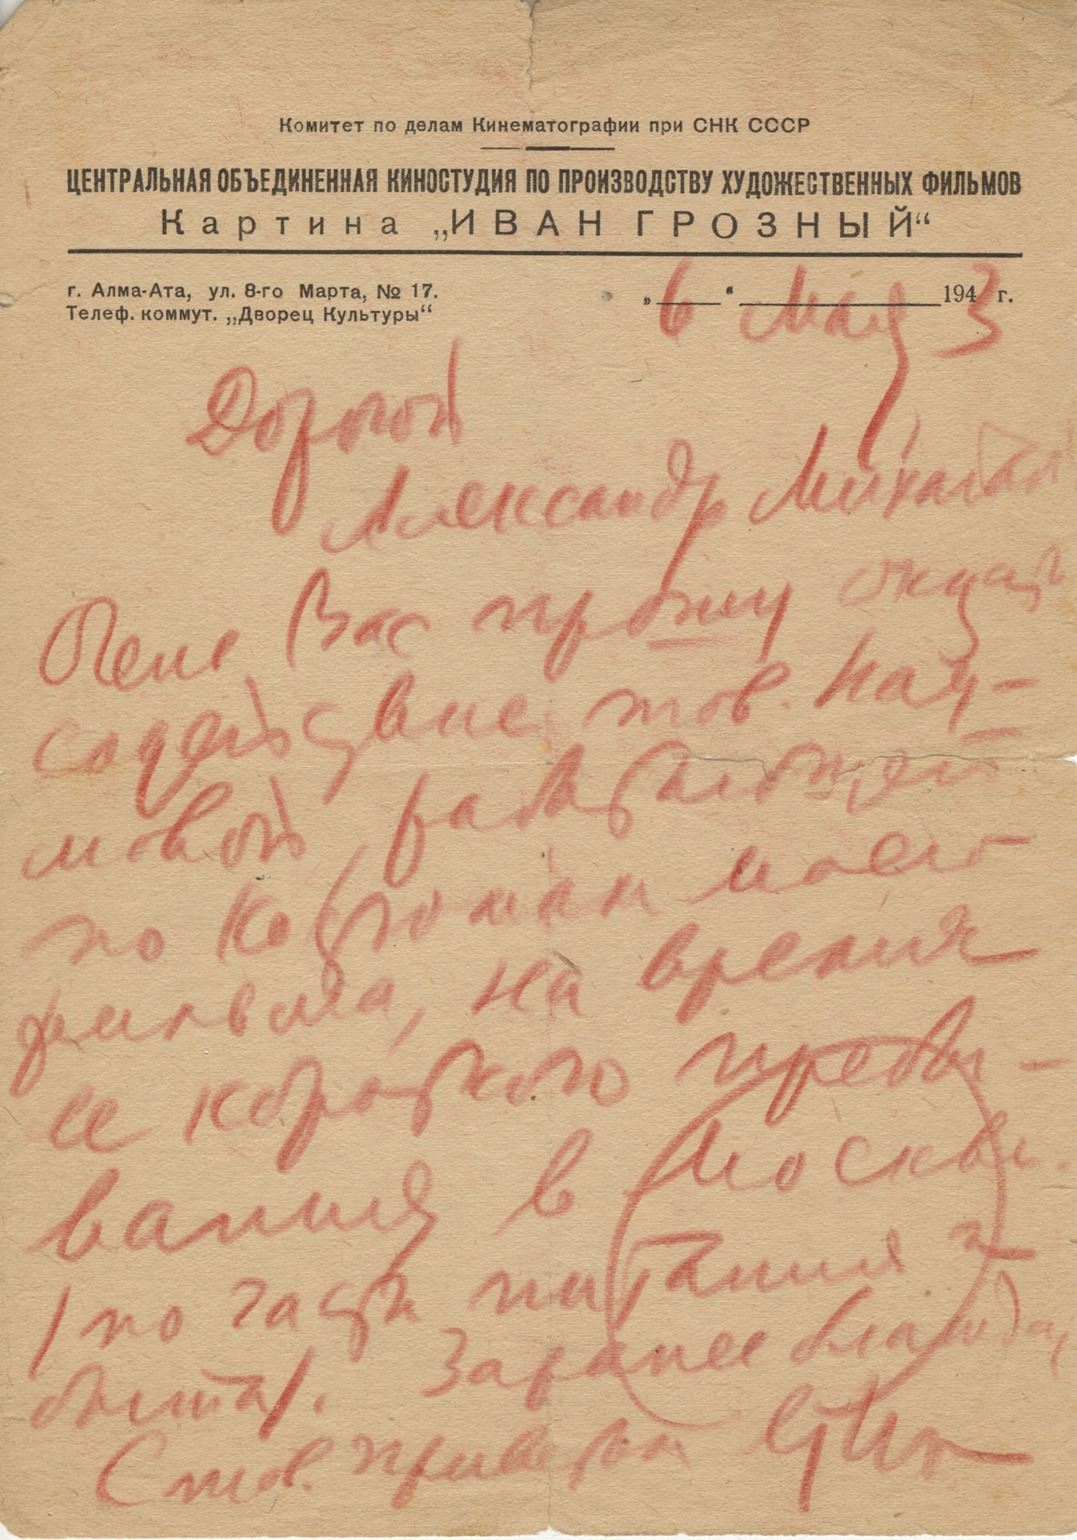 Комитет по делам Кинематографии при СНК СССР
ЦЕНТРАЛЬНАЯ ОБЪЕДИНЕННАЯ КИНОСТУДИЯ ПО ПРОИЗВОДСТВУ ХУДОЖЕСТВЕННЫХ ФИЛЬМОВ
Картина „ИВАН ГРОЗНЫЙ“
г. Алма-Ата, ул. 8-го Марта, № 17.
Телеф. коммут. „Дворец Культуры“
„6“ Мая 1943 г.
Дорогой
Александр
Очень Вас прошу оказать
содействие тов. Нау-
мовой работающей
по костюмам моего
фильма, на время
ее короткого пребы-
вания в Москве.
(по части питания и
быта). Заранее благодар
С тов. приветом